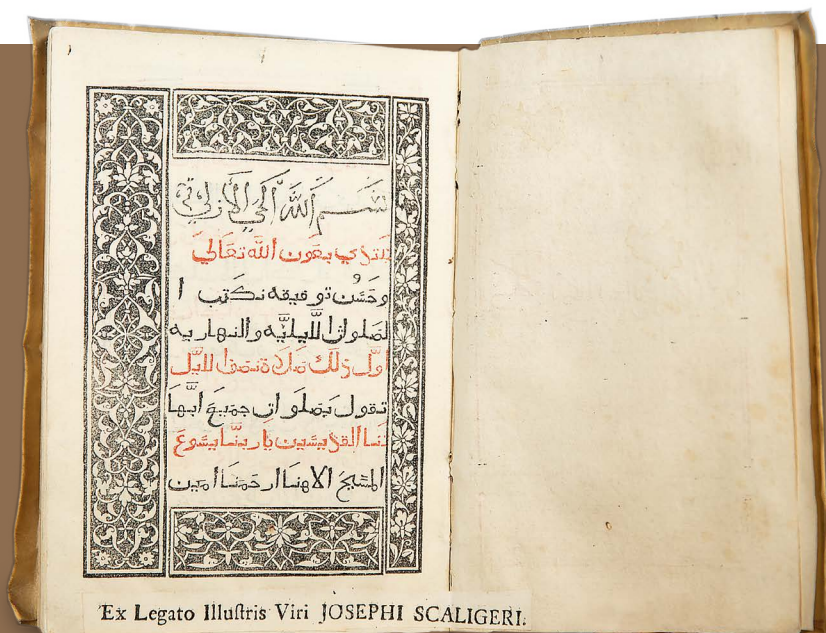 بسم الله الحي الازلي
نبتدي بعون الله تعالي
وحسن توفيقه نكتب ا
لصلواة الليليه والنهاريه
اول ذلك صلاة نصف الليل
تقول بصلوات جميع ابها
تنا القديسين يا ربنا يسوع
المسيح الاهنا ارحمنا امين
Ex Legato Illuſtris Viri JOSEPHI SCALIGERI.